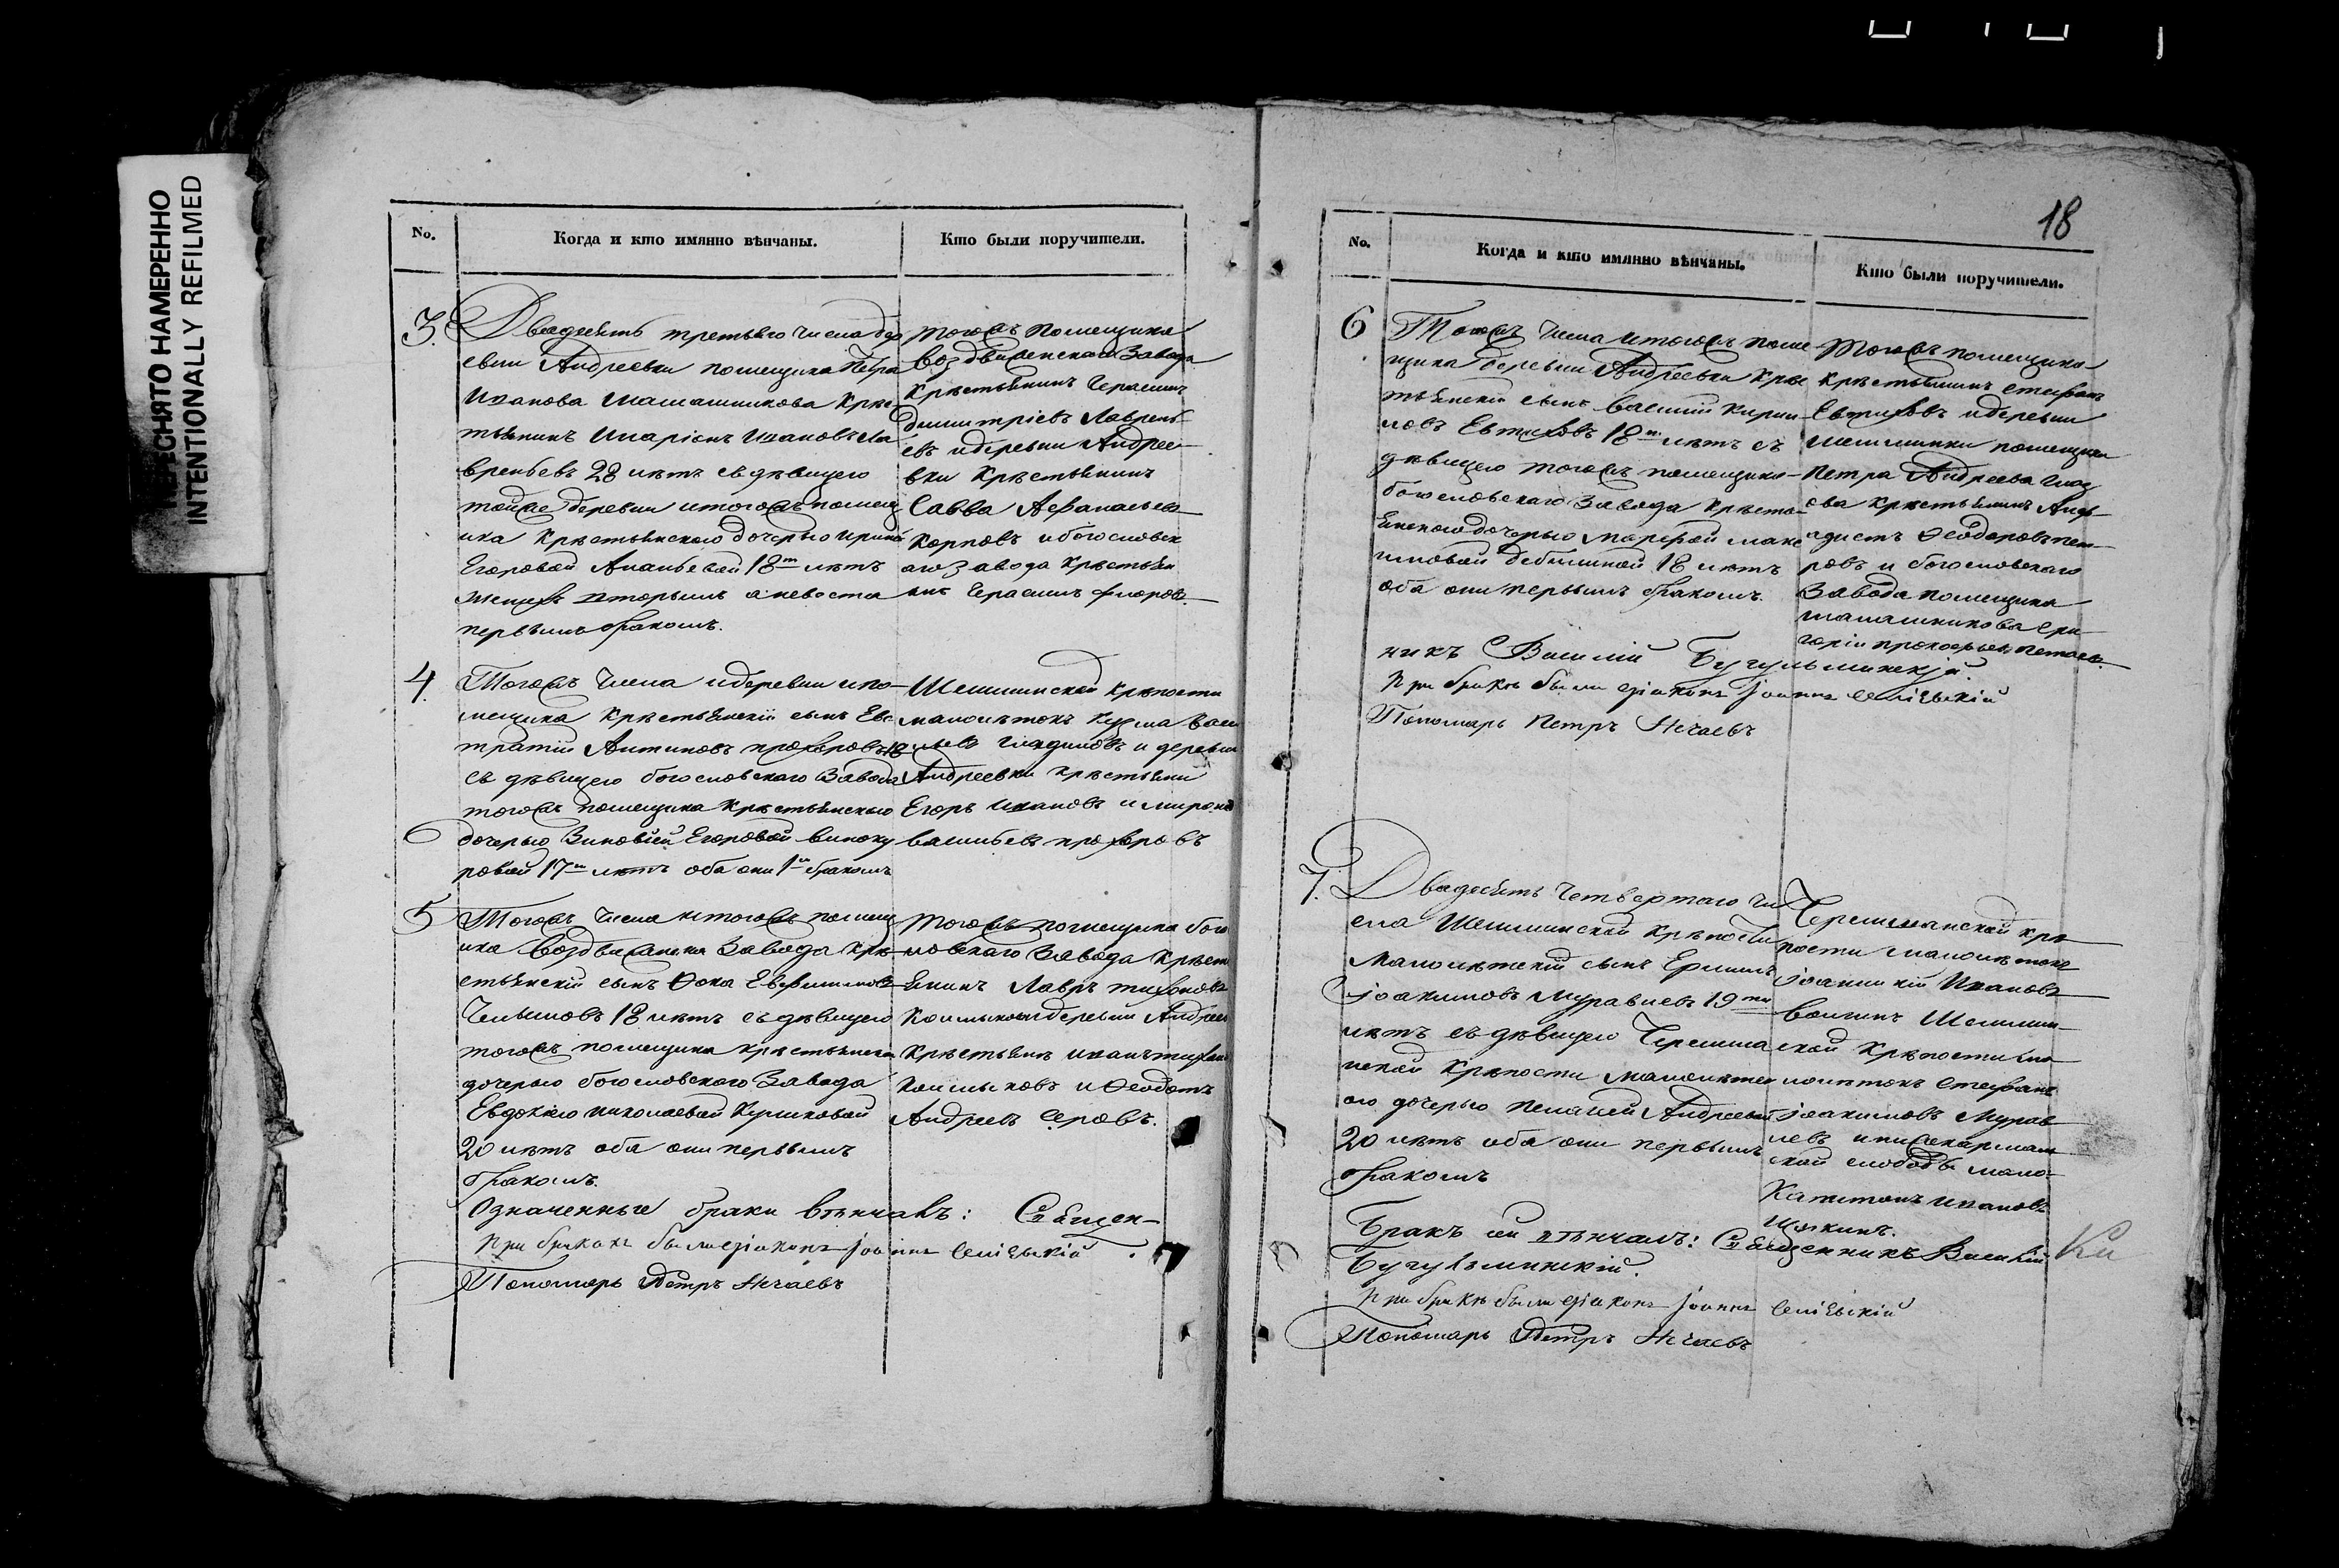 ПЕРЕСНЯТО НАМЕРЕННО
INTENTIONALLY REFILMED
No. Когда и кто имянно вѣнчаны. Кто были поручители.
3. Двадцять третьяго числа дер
евни Андреевки помещика Петра
Иванова Шашашникова Крес
тьянинъ Иларіонъ Ивановъ Ла
врентьевъ 28 лѣтъ съ дѣвицею
тойже деревни и тогожъ помещ
ика Крестьянскою дочерью Ириной
Егоровой Ананьевой 18ти лѣтъ
женихъ вторымъ а невеста
первымъ бракомъ.
тогожъ помещика
воздвиженскаго Завода
Крѣстьянинъ Герасимъ
Димитріевъ Лаврень
евъ и деревни Андрее
вки Крѣстьянинъ
Савва Афанасьевъ
Карповъ и богословск
аго Завода Крѣстьян
инъ Герасимъ
4. Тогожъ числа и деревни и по
мещика Крѣстьянскій сынъ Евс
тратій Антиповъ Прохоровъ 18
съ дѣвицею богословскаго Завода
тогожъ помещика Крѣстьянскою
дочерью Зиновіей Егоровой Виноку
ровой 17ти лѣтъ оба они 1м бракомъ
Шешминской Крѣпости
малолѣтокъ Кузма Васи
льевъ и деревни
Андреевки Крѣстьяни
Егоръ Ивановъ и Миронъ
Васильевъ Прохоровъ
5 Тогожъ числа и тогожъ помещ
ика Воздвиженска Завода Крѣ
стьянскій сынъ Ѳока Евфимовъ
18 лѣтъ съ дѣвицею
тогожъ помещика крѣстьянска
дочерью богословскаго Завода
Евдокіею Николаевой Куликовой
20 лѣтъ оба они первымъ
бракомъ.
тогожъ помещика бого
словскаго Завода Крѣст
янинъ Лавръ Тихоновъ
деревни Андреев
Крѣстьянъ Иванъ Тихан
и Ѳеодотъ
Андреевъ Серовъ.
Означенные браки вѣнчалъ: Священ-
При бракахъ были діаконъ Іоаннъ
Пономарь Петръ Нечаевъ
18
No. Когда и кто имянно вѣнчаны. Кто были поручители.
6 Тогожъ числа и тогожъ поме
щика деревни Андреевки Крес
тьянскій сынъ Василій Кирил
ловъ Евтиховъ 18ти лѣтъ съ
дѣвицею тогожъ помещика
богословскаго Завода Крѣсть
янскою дочерью Марѳой Мака
18 лѣтъ
оба они первымъ бракомъ.
Тогожъ помещика
Крѣстьянинъ Стефанъ
Евтиховъ и деревни
Шешминки помещика
Петра Андреева Глаз
ова Крѣстьянинъ
Ѳеодоровъ Пет
ровъ и богословскаго
Завода помещика
Шашашникова Гри
горій
никъ Василій Бугульминскій.
При бракѣ были діаконъ Іоаннъ
Пономарь Петръ Нечаевъ
7. Двадесять четвертаго чи
сла Шешминской Крѣпости
Малолѣтскій сынъ Ермилъ
Іоакимовъ Муравлевъ 19ти
лѣтъ съ дѣвицею Черемша
нской Крѣпости Малолѣтск
ою дочерью Пелагией Андреевой
20 лѣтъ оба они первымъ
бракомъ
Черемшанской Крѣ
пости малолѣтокъ
Іоанникій Ивановъ
Шешмин
ской Крѣпости ма
лолѣтокъ Стефанъ
Іоакимовъ Мурав
левъ и нижекармал
ской слободы мало
Капитонъ Ивановъ
Щукинъ.
Бракъ сей вѣнчалъ: Священникъ Василій
Бугульминскій.
При бракѣ были діаконъ Іоаннъ
Пономарь Петръ Нечаевъ